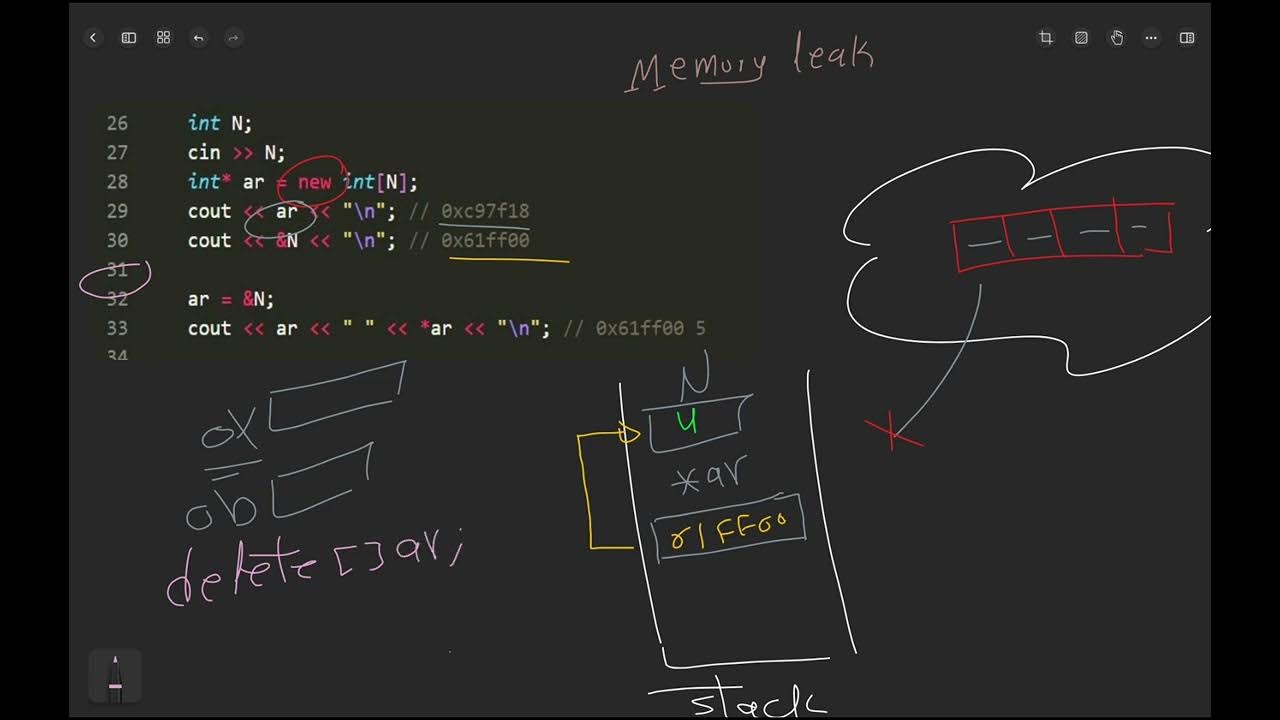 Memory leak
26 int N;
27 cin >> N;
28 int* ar = new int[N];
29 cout << ar << "\n"; // 0xc97f18
30 cout << &N << "\n"; // 0x61ff00
31
32 ar = &N;
33 cout << ar << " " << *ar << "\n"; // 0x61ff00 5
34
N
4
0x
*ar
0b
61FF00
delete[]ar;
stack